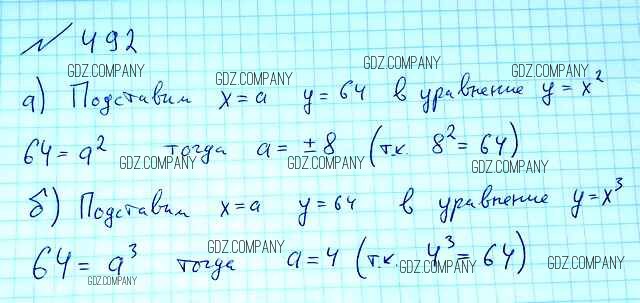 № 492
GDZ.COMPANY GDZ.COMPANY GDZ.COMPANY GDZ.COMPANY
а) Подставим x = a y = 64 в уравнение y = x²
64 = a² тогда a = ±8 (т.к. 8² = 64)
GDZ.COMPANY GDZ.COMPANY GDZ.COMPANY
б) Подставим x = a y = 64 в уравнение y = x³
64 = a³ тогда a = 4 (т.к. 4³ = 64)
GDZ.COMPANY GDZ.COMPANY GDZ.COMPANY GDZ.COMPANY